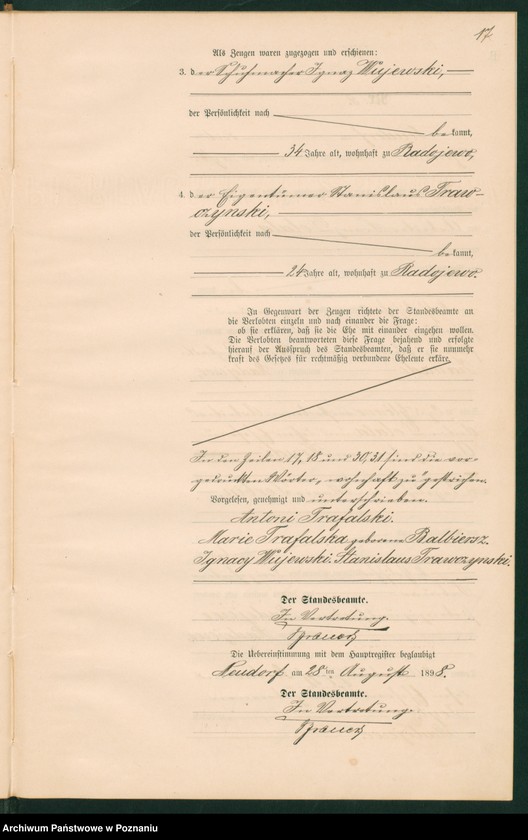 17
Als Zeugen waren zugezogen und erschienen:
3. der Schuhmacher Ignaz Wujewski,
der Persönlichkeit nach
bekannt,
34 Jahre alt, wohnhaft zu Radojewo,
4. der Eigentümer Stanislaus Traw-
czynski,
der Persönlichkeit nach
bekannt,
24 Jahre alt, wohnhaft zu Radojewo.
In Gegenwart der Zeugen richtete der Standesbeamte an
die Verlobten einzeln und nach einander die Frage:
ob sie erklären, daß sie die Ehe mit einander eingehen wollen.
Die Verlobten beantworteten diese Frage bejahend und erfolgte
hierauf der Ausspruch des Standesbeamten, daß er sie nunmehr
kraft des Gesetzes für rechtmäßig verbundene Eheleute erkläre.
In den Zeilen 17, 18 und 30, 31 sind die vor-
gedruckten Wörter „wohnhaft zu" gestrichen.
Vorgelesen, genehmigt und unterschrieben.
Antoni Trafalski.
Marie Trafalska geborene Balbierz.
Ignacy Wujewski. Stanislaus Trawczynski.
Der Standesbeamte.
In Vertretung.
Die Uebereinstimmung mit dem Hauptregister beglaubigt
Neudorf am 28ten August 1898.
Der Standesbeamte.
In Vertretung.
Archiwum Państwowe w Poznaniu